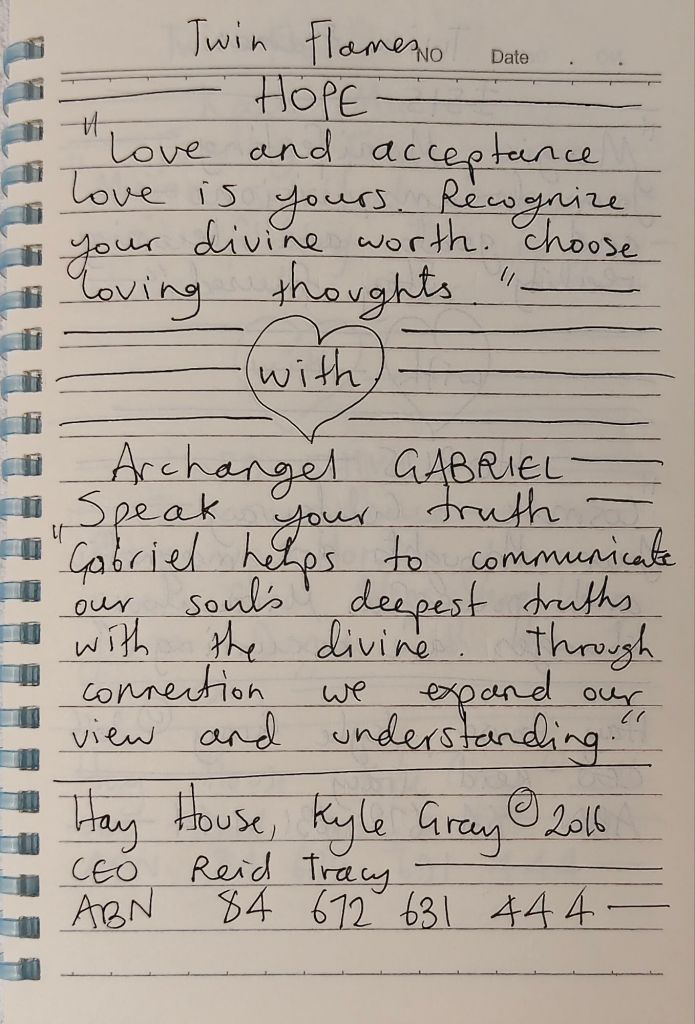 Twin Flames NO Date . .
HOPE
"Love and acceptance
love is yours. Recognize
your divine worth. choose
loving thoughts."
with
Archangel GABRIEL
Speak your truth
"Gabriel helps to communicate
our soul's deepest truths
with the divine. Through
connection we expand our
view and understanding."
Hay House, Kyle Gray © 2016
CEO Reid Tracy
ABN 84 672 631 444